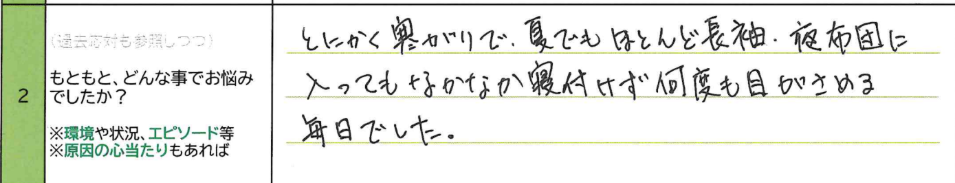 2
(過去応対も参照しつつ)
もともと、どんな事でお悩み
でしたか？
※環境や状況、エピソード等
※原因の心当たりもあれば
とにかく寒がりで、夏でもほとんど長袖、夜布団に
入ってもなかなか寝付けず何度も目がさめる
毎日でした。